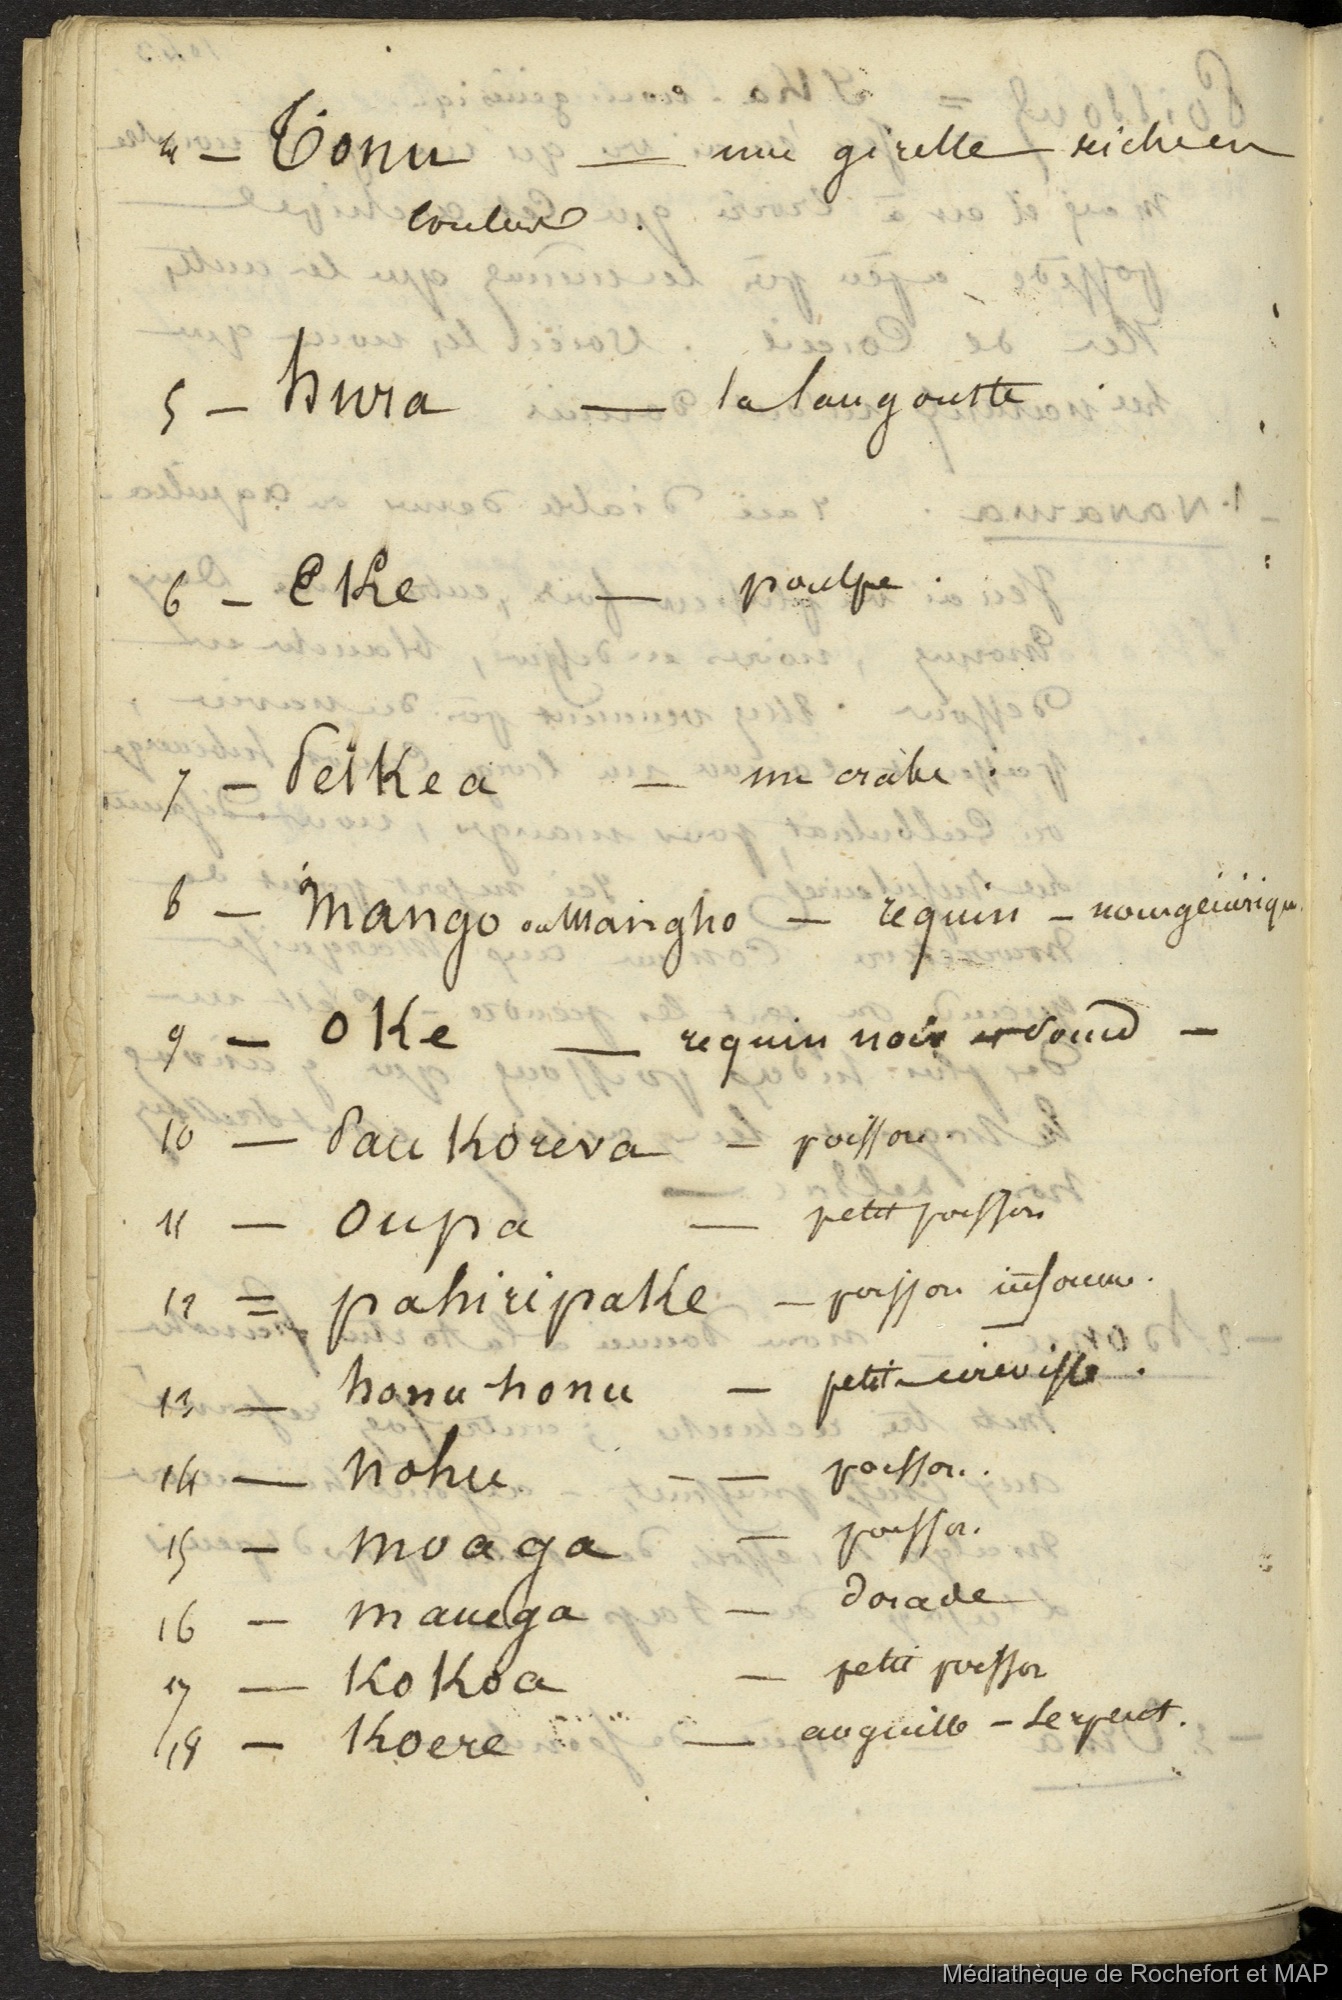 4 — Tonu — une girelle riche en
couleurs.
5 — hura — la langouste.
6 — eKe — poulpe.
7 — PeiKea — un crabe.
8 — Mango ou Mangho — requin — nom générique.
9 — oKe — requin noir et rond —
10 — PauKoreva — poisson.
11 — oupa — petit poisson
12 = pahiripaKe — poisson informe.
13 — honu-honu — petite écrevisse.
14 — nohu — poisson.
15 — moaga — poisson.
16 — mauega — dorade
17 — KoKoa — petit poisson
18 — Koere — anguille — serpent.
Médiathèque de Rochefort et MAP